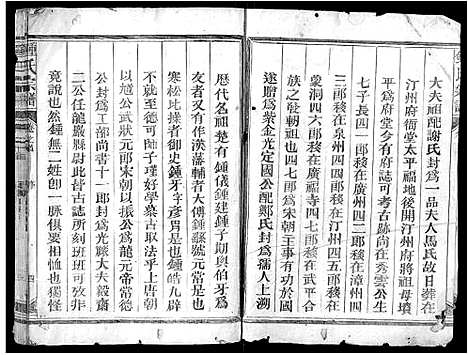 大夫祖配謝氏封爲一品夫人馬氏故日葬在
汀州府衙堂太平福地後開汀州府將祖母墳
平爲府堂今有府誌可考古跡尚在秀雲公生
七子長四一郎移在廣州四二郎移在漳州四
三郎移在泉州四四郎移在汀州四五郎移在
蒙洞四六郎移在廣福寺四七郎移在武平合
族之始也公爲四七郎爲宋朝主事有功於國
遂贈爲紫金光定國公配鄭氏封爲孺人上溯
歷代名祖楚有鍾儀鍾建鍾子期與伯牙爲
友者又有作漢藩輔者大傅鍾繇號元常是也
寒松此操者御史鍾牙字彥男是也鍾皓九辟
公府者德可師子瑾好學慕古取法乎上唐朝
以馗公武狀元郎宋朝以振公爲龍元帝常德
公封爲工部尚書十一郎封爲光祿大夫毅齋
公作龍巖縣尉此皆古誌所刻班班可攷非
竟說也然鍾無二姓創一脉俱要相恤也猶
鍾氏宗譜